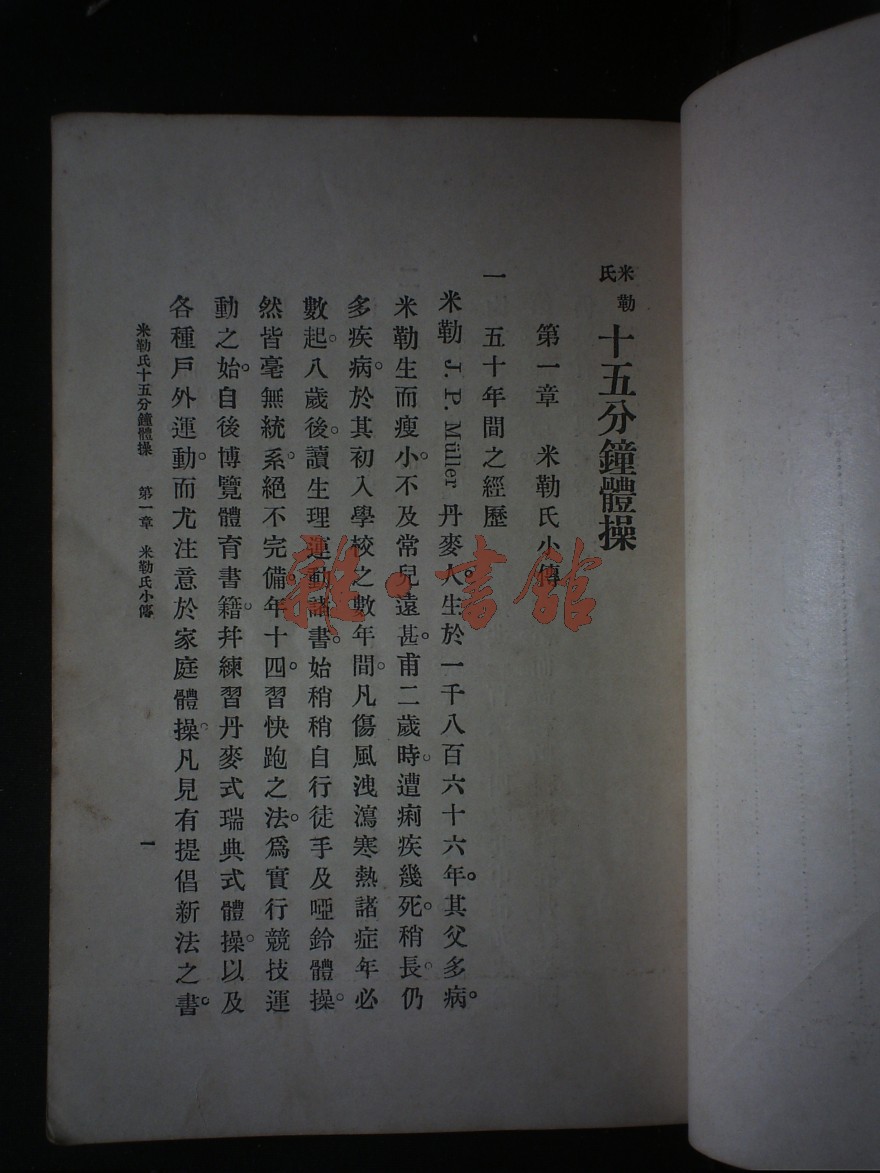 米勒氏十五分鐘體操
第一章　米勒氏小傳
一　五十年間之經歷
米勒 J. P. Müller 丹麥人。生於一千八百六十六年。其父多病。
米勒生而瘦小。不及常兒遠甚。甫二歲時。遭痢疾幾死。稍長。仍
多疾病。於其初入學校之數年間。凡傷風洩瀉寒熱諸症年必
數起。八歲後。讀生理運動諸書。始稍稍自行徒手及啞鈴體操。
然皆毫無統系。絕不完備。年十四。習快跑之法。爲實行競技運
動之始。自後博覽體育書籍。幷練習丹麥式瑞典式體操。以及
各種戶外運動。而尤注意於家庭體操。凡見有提倡新法之書。
米勒氏十五分鐘體操　第一章　米勒氏小傳
一
雜·書館